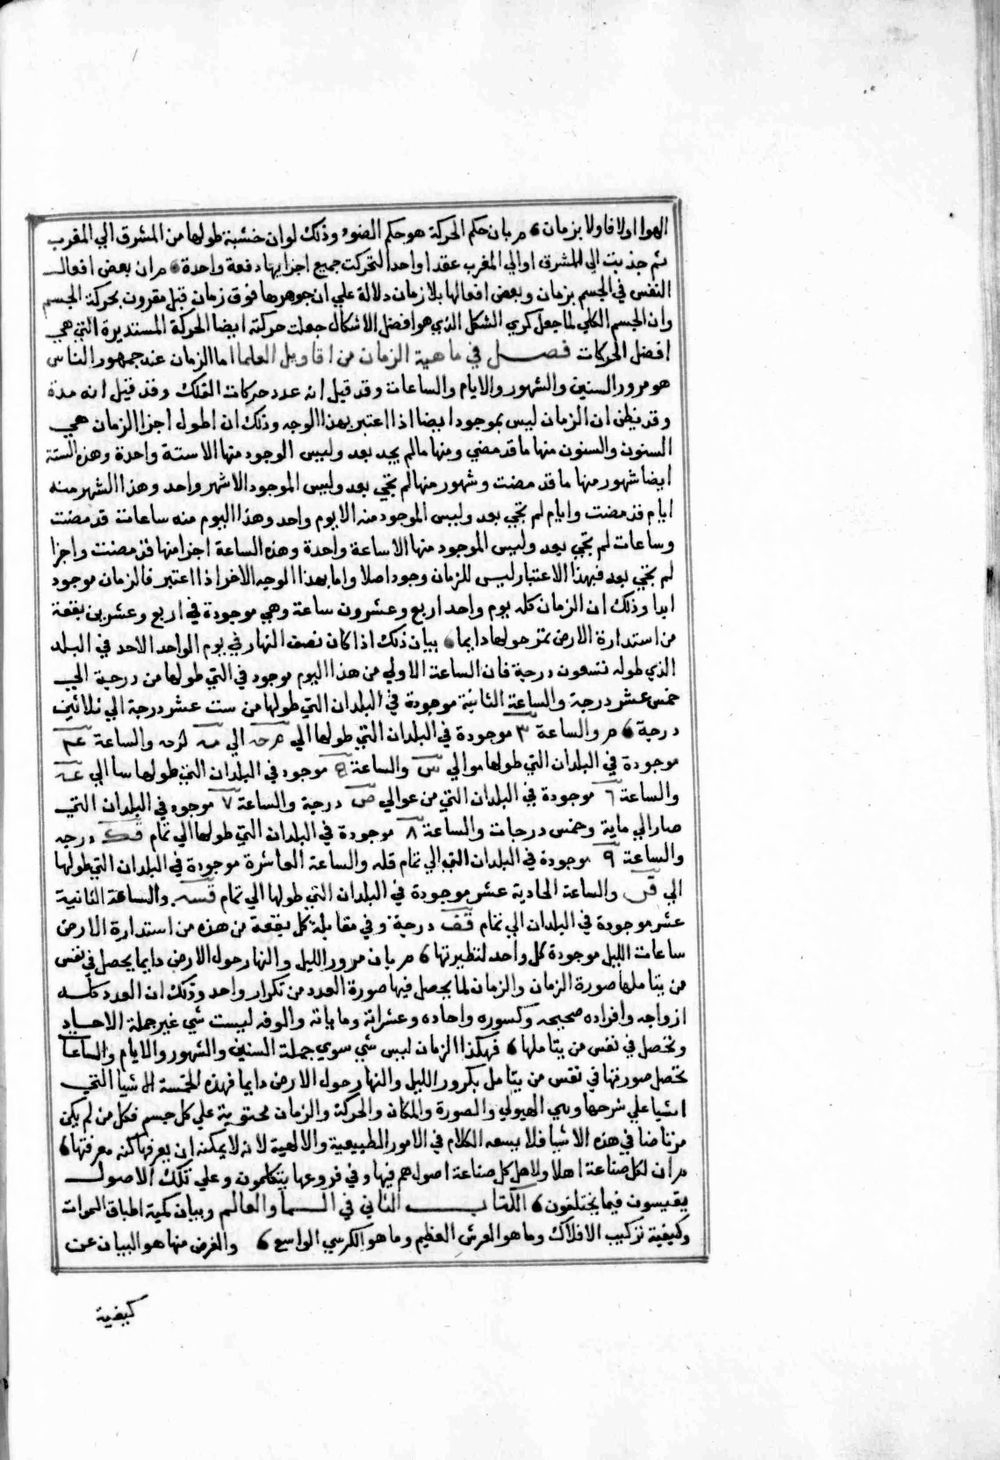 الهوا اولا فاولا بزمان م بان حكم الحركة هو حكم الضوء وذلك لو ان خشبة طولها من المشرق الي المغرب
ثم جذبت الي المشرق او الي المغرب عقدا واحدا لتحركت جميع اجزايها دفعة واحدة م ان بعض افعال
النفس في الجسم بزمان وبعض افعالها بلا زمان دلالة علي ان جوهرها فوق زمان قبل مقرون بحركة الجسم
وان الجسم الكلي لما جعل كري الشكل الذي هو افضل الاشكال جعلت حركته ايضا الحركة المستديرة التي هي
افضل الحركات فصل في ماهية الزمان من اقاويل العلما اما الزمان عند جمهور الناس
هو مرور السنين والشهور والايام والساعات وقد قيل انه عدد حركات الفلك وقد قيل انه مدة
وقد يظن ان الزمان ليس بموجود ايضا اذا اعتبر بهذا الوجه وذلك ان اطول اجزا الزمان هي
السنون والسنون منها ما قد مضي ومنها ما لم يجد بعد وليس الوجود منها الا سنة واحدة وهذه السنة
ايضا شهور منها ما قد مضت وشهور منها لم تجي بعد وليس الموجود الا شهر واحد وهذا الشهر منه
ايام قد مضت وايام لم تجي بعد وليس الموجود منه الا يوم واحد وهذا اليوم منه ساعات قد مضت
وساعات لم تجي بعد وليس الموجود منها الا ساعة واحدة وهذه الساعة اجزا منها قد مضت واجزا
لم تجي بعد فبهذا الاعتبار ليس للزمان وجود اصلا واما بهذا الوجه الاخر اذا اعتبر فالزمان موجود
ابدا وذلك ان الزمان كله يوم واحد اربع وعشرون ساعة وهي موجودة في اربع وعشرين بقعة
من استدارة الارض تمتز حولها دايما بيان ذلك اذا كان نصف النهار في يوم الواحد الاحد في البلد
الذي طوله تسعون درجة فان الساعة الاولي من هذا اليوم موجود في التي طولها من درجة الي
خمس عشر درجة والساعة الثانية موجودة في البلدان التي طولها من ست عشر درجة الي ثلاثين
درجة م والساعة ٣ موجودة في البلدان التي طولها الي والساعة
موجودة في البلدان التي طولها موالي س والساعة موجود في البلدان التي طولها سا الي عه
والساعة ٦ موجودة في البلدان التي من عوالي ص درجة والساعة ٧ موجود في البلدان التي
صار الي ماية وخمس درجات والساعة ٨ موجودة في البلدان التي طولها الي تمام قك درجه
والساعة ٩ موجودة في البلدان التي الي تمام قله والساعة العاشرة موجودة في البلدان التي طولها
الي قن والساعة الحادية عشر موجودة في البلدان التي طولها الي تمام قسه والساعة الثانية
عشر موجودة في البلدان الي تمام قف درجة وفي مقابلة كل بقعة من هذه من استدارة الارض
ساعات الليل موجودة كل واحد لنظيرتها م بان مرور الليل والنهار حول الارض دايما يحصل في نفس
من يتاملها صورة الزمان والزمان لما يحصل فيها صورة العدد من تكرار واحد وذلك ان العدد كله
ازواجه وافراده صحيحه وكسوره واحاده وعشراته وماياته والوفه ليست شي غير جملة الاحاد
وتحصل في نفس من يتاملها فهكذا الزمان ليس شي سوي جملة السنين والشهور والايام والساعات
تحصل صورتها في نفس من يتامل بكرور الليل والنهار حول الارض دايما فهذه الخمسة الاشيا التي
علي شرحها وهي الهيولي والصورة والمكان والحركة والزمان محتوية علي كل جسم فكل من لم يكن
مرتاضا في هذه الاشيا فلا يسعه الكلام في الامور الطبيعية والالهية لانه لا يمكنه ان يعرفها كنه معرفتها
م ان لكل صناعة اهلا ولاهل كل صناعة اصول هم فيها وفي فروعها يتكلمون وعلي تلك الاصول
يقيسون فيما يختلفون الكتاب الثاني في السما والعالم وبيان كمية اطباق السموات
وكيفية تركيب الافلاك وما هو العرش العظيم وما هو الكرسي الواسع والغرض منها هو البيان عن
كيفية